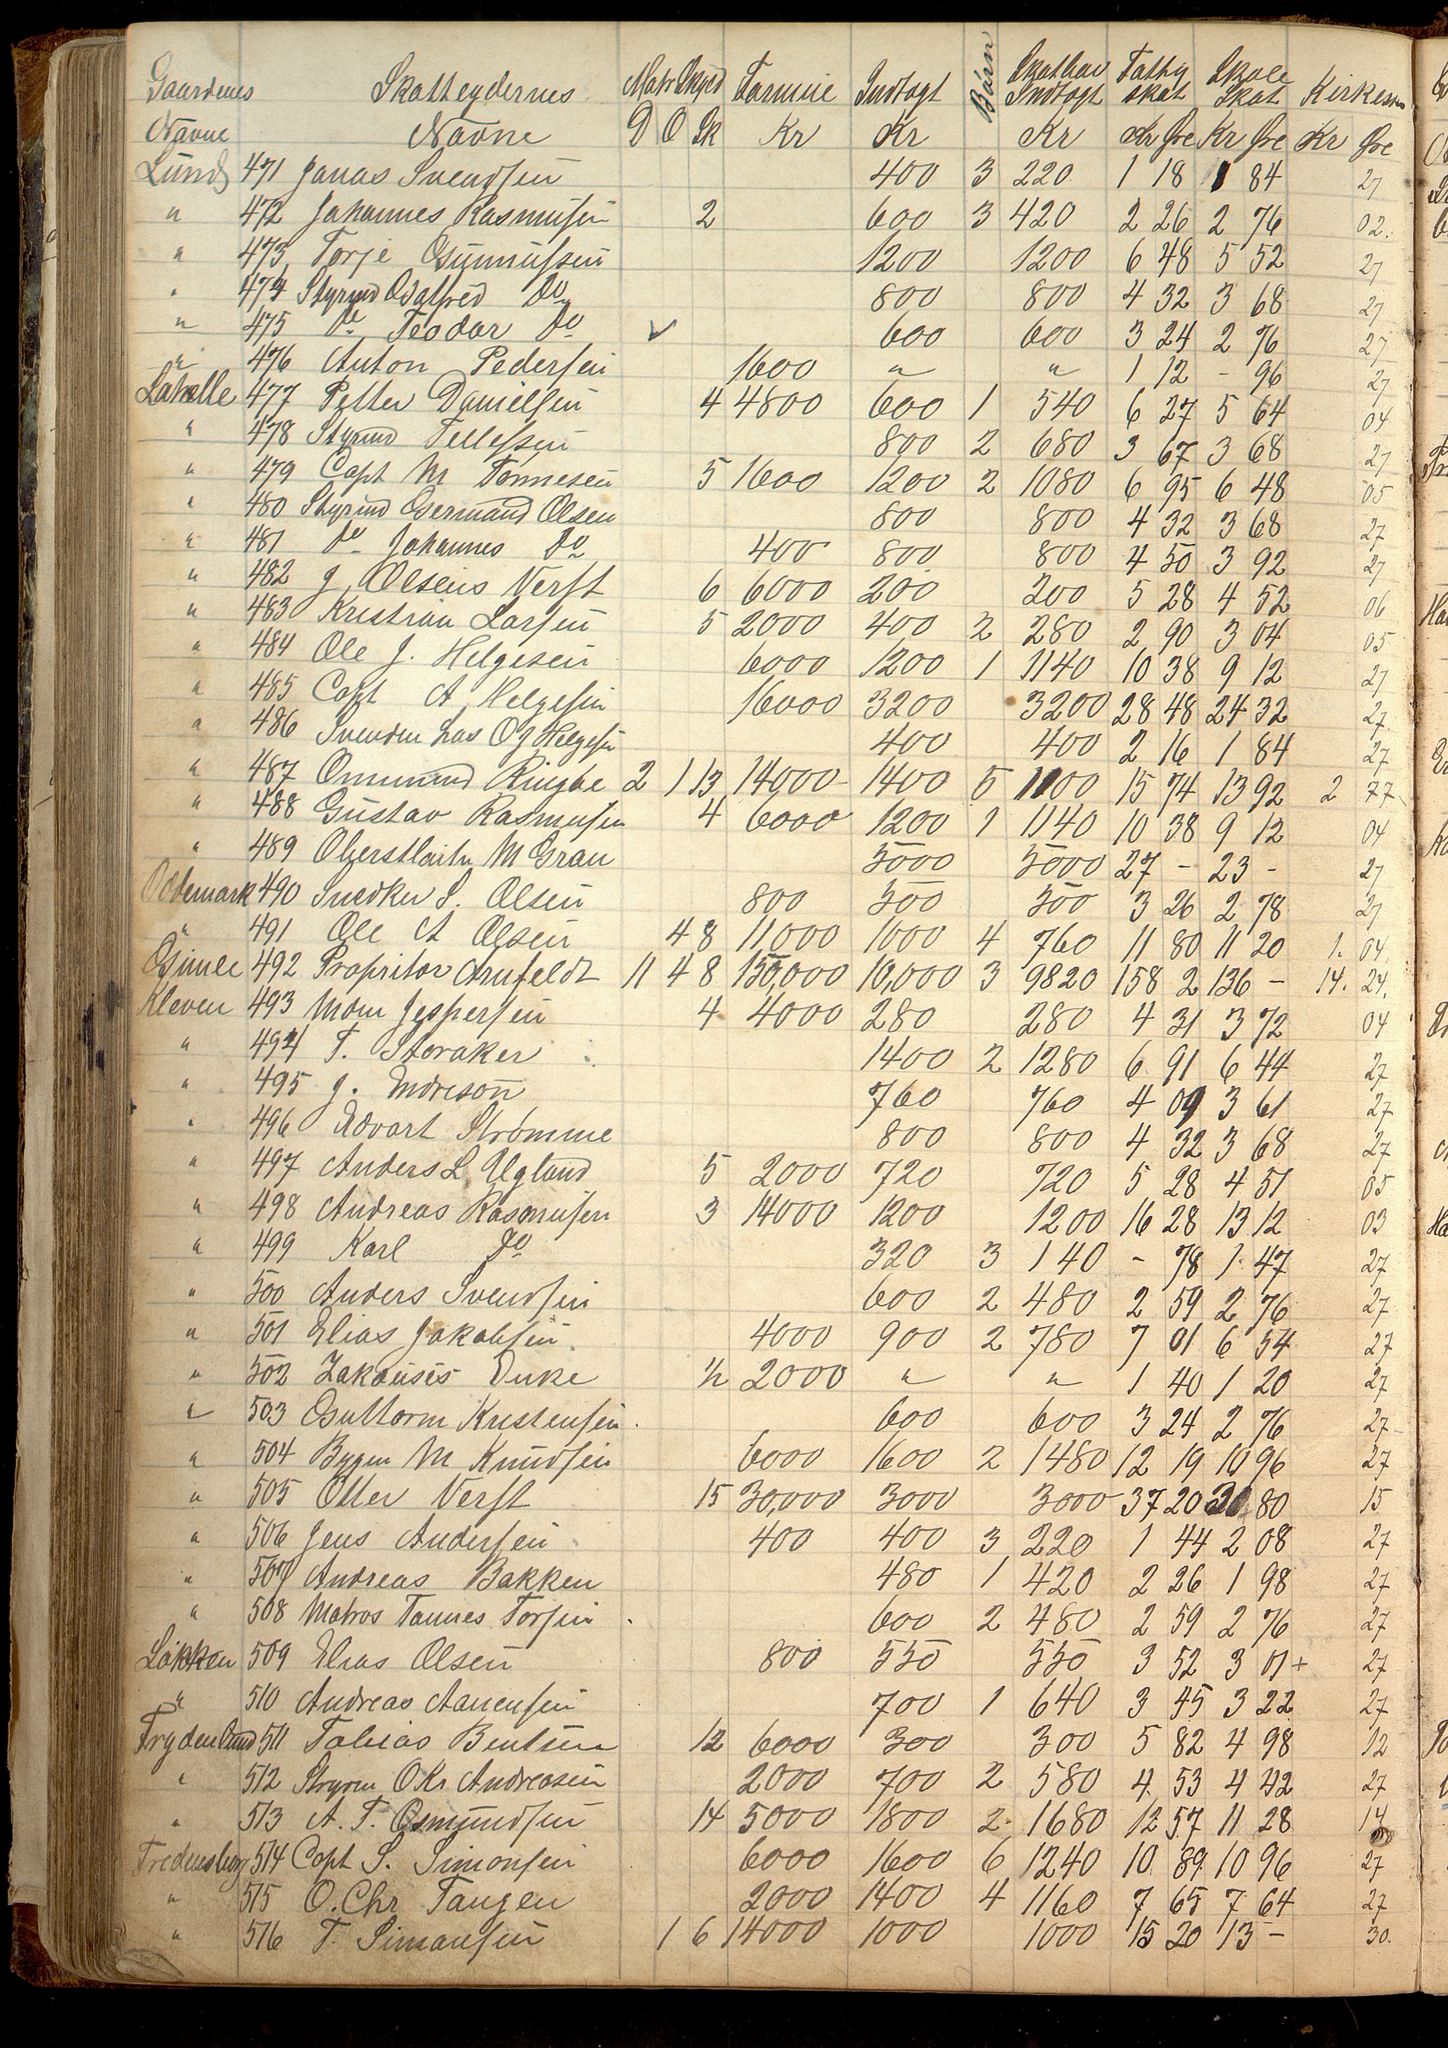 Gaardenes Skatteydernes Matr Skyld Formue Indtægt Børn Skatbar Indtægt Fattig skat Skole Skat Kirkesk
Navne Navne D O Sk Kr Kr Kr Kr Øre Kr Øre Kr Øre
Lunds 471 Jonas Svendsen 400 3 220 1 18 1 84 27
" 472 Johannes Rasmusen 2 600 3 420 2 26 2 76 02.
" 473 Torje Gunnufsen 1200 1200 6 48 5 52 27
" 474 Styrmd Odalfred Do 800 800 4 32 3 68 27
" 475 do Teodor Do ✓ 600 600 3 24 2 76 27
" 476 Anton Pedersen 1600 " " 1 12 - 96 27
Lahelle 477 Petter Danielsen 4 4800 600 1 540 6 27 5 64 04
" 478 Styrmd Tellefsen 800 2 680 3 67 3 68 27
" 479 Capt M Tønnesen 5 1600 1200 2 1080 6 95 6 48 05
" 480 Styrmd Germand Olsen 800 800 4 32 3 68 27
" 481 do Johannes Do 400 800 800 4 50 3 92 27
" 482 J. Olsens Verft 6 6000 200 200 5 28 4 52 06
" 483 Kristian Larsen 5 2000 400 2 280 2 90 3 04 05
" 484 Ole J. Helgesen 6000 1200 1 1140 10 38 9 12 27
" 485 Capt A Helgesen 16000 3200 3200 28 48 24 32 27
" 486 Svenden hos O J Helgesen 400 400 2 16 1 84 27
" 487 Ommund Ringbe 2 1 13 14000 1400 5 1100 15 74 13 92 2 77
" 488 Gustav Rasmusen 4 6000 1200 1 1140 10 38 9 12 04
" 489 Oberstløitn M Gran 5000 5000 27 - 23 - 27
Oddemark 490 Snedker S. Olsen 800 500 500 3 26 2 78 27
" 491 Ole A Olsen 4 8 11000 1000 4 760 11 80 11 20 1. 04
Gimle 492 Propritør Arnfeldt 11 4 8 150,000 10,000 3 9820 158 2 136 - 14. 24.
Kleven 493 Mdm Jespersen 4 4000 280 280 4 31 3 72 04
" 494 T. Storaker 1400 2 1280 6 91 6 44 27
" 495 J. Endreson 760 760 4 09 3 61 27
" 496 Edvart Strømme 800 800 4 32 3 68 27
" 497 Anders L Ugland 5 2000 720 720 5 28 4 51 05
" 498 Andreas Rasmusen 3 14000 1200 1200 16 28 13 12 03
" 499 Karl Do 320 3 140 - 78 1 47 27
" 500 Anders Svendsen 600 2 480 2 59 2 76 27
" 501 Elias Jakobsen 4000 900 2 780 7 01 6 54 27
" 502 Enke ½ 2000 " " 1 40 1 20 27
" 503 Guttorm Kristensen 600 600 3 24 2 76 27
" 504 Bygm M Knudsen 6000 1600 2 1480 12 19 10 96 27
" 505 Otter Verft 15 30,000 3000 3000 37 20 31 80 15
" 506 Jens Andersen 400 400 3 220 1 44 2 08 27
" 507 Andreas Bakken 480 1 420 2 26 1 98 27
" 508 Matros Tønnes Torsen 600 2 480 2 59 2 76 27
Løkken 509 Elias Olsen 800 550 550 3 52 3 01 + 27
" 510 Andreas Aanensen 700 1 640 3 45 3 22 27
Frydenlund 511 Tobias Bentsen 12 6000 300 300 5 82 4 98 12
" 512 Styrm O Kr Andreasen 2000 700 2 580 4 53 4 42 27
" 513 A. T. Osmundsen 14 5000 1800 2 1680 12 57 11 28 14
Fredensborg 514 Capt S. Simonsen 6000 1600 6 1240 10 89 10 96 27
" 515 O. Chr Tangen 2000 1400 4 1160 7 65 7 64 27
" 516 T. Simonsen 1 6 14000 1000 1000 15 20 13 - 30.